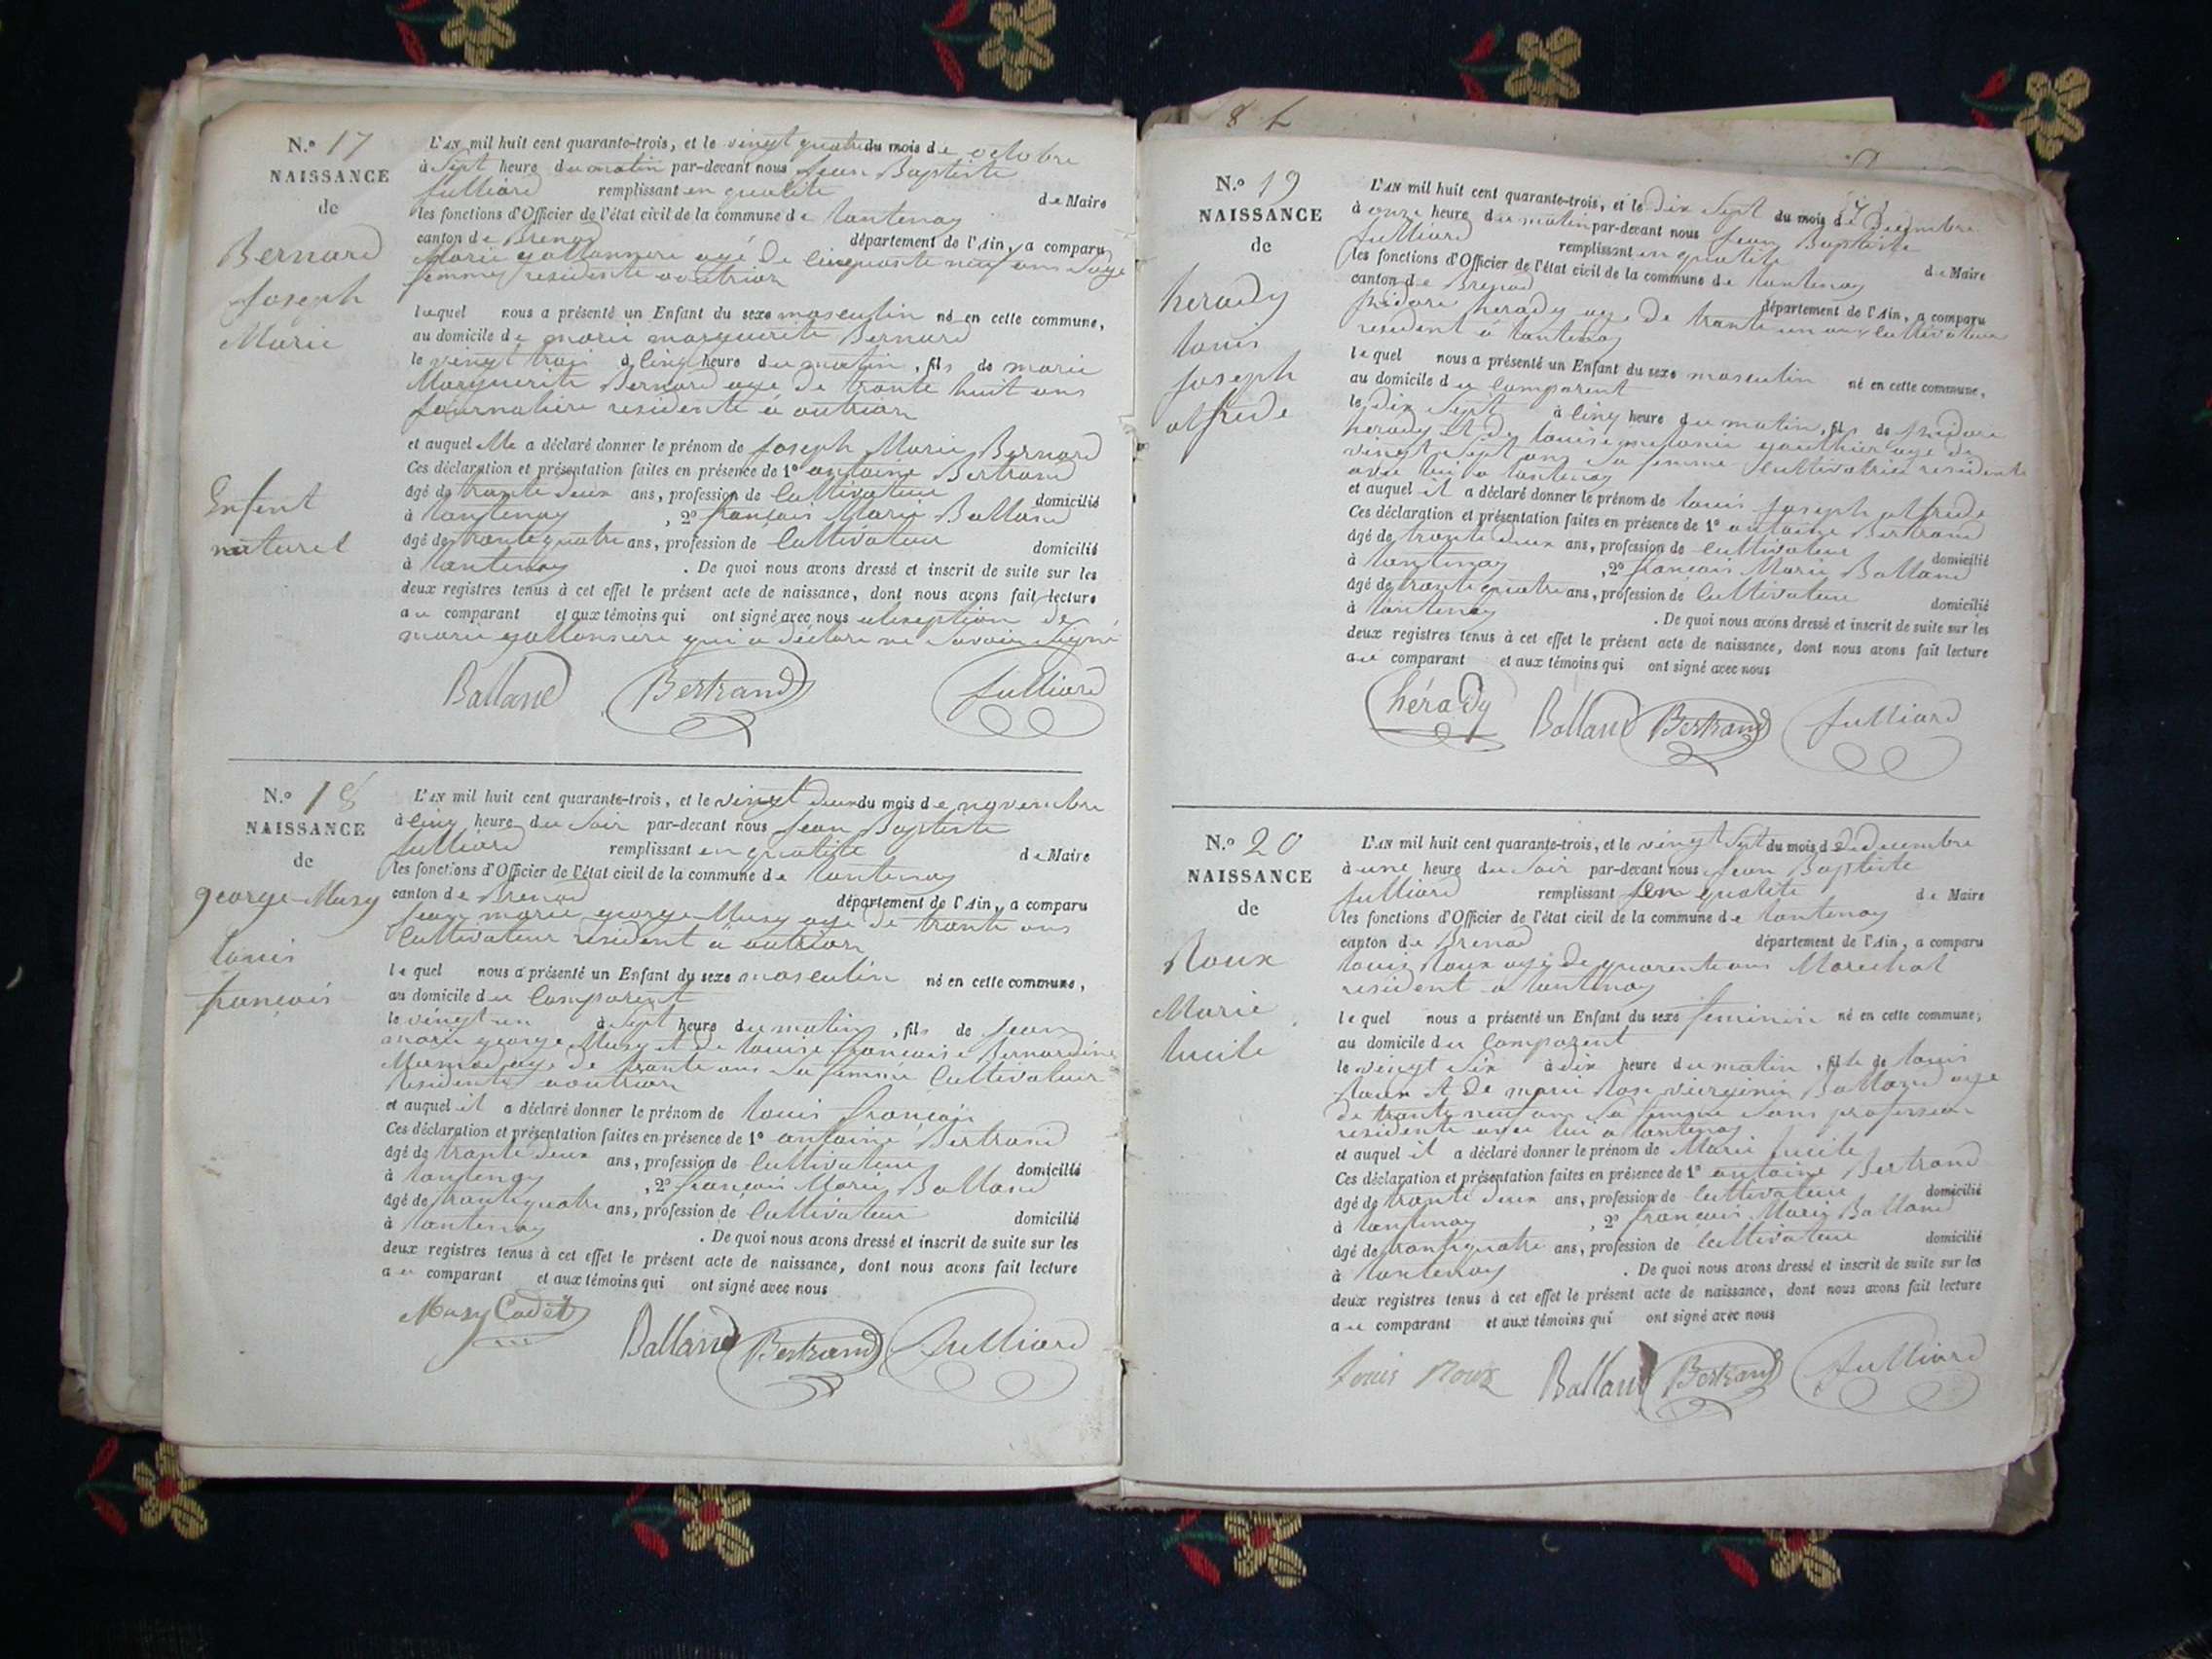 N.º 17
NAISSANCE
de
Bernard
Joseph
Marie
Enfent
naturel
L'AN mil huit cent quarante-trois, et le vingt quatre du mois de octobre
à Sept heure du matin par-devant nous Jean Baptiste
Julliard remplissant en qualité de Maire
les fonctions d'Officier de l'état civil de la commune de Lantenay
canton de Brenod département de l'Ain, a comparu
Marie gallonnere agé de Cinquante neuf ans Sage
femme residente a outriar
laquel nous a présenté un Enfant du sexe masculin né en cette commune,
au domicile de marie marguerite Bernard
le vingt trois à Cinq heure du matin, fils de marie
Marguerite Bernard age de trante huit ans
Journaliere residente à outriar
et auquel Elle a déclaré donner le prénom de Joseph Marie Bernard
Ces déclaration et présentation faites en présence de 1º antoine Bertrand
âgé de trante deux ans, profession de Cultivateur domicilié
à Lantenay , 2º françois Marie Balland
âgé de trante quatre ans, profession de Cultivateur domicilié
à Lantenay . De quoi nous avons dressé et inscrit de suite sur les
deux registres tenus à cet effet le présent acte de naissance, dont nous avons fait lecture
au comparant et aux témoins qui ont signé avec nous de
marie gallonnere qui a déclaré ne Savoir Signé
Balland Bertrand Julliard
N.º 18
NAISSANCE
de
george-Musy
Louis
françois
L'AN mil huit cent quarante-trois, et le vingt deux du mois de novembre
à Cinq heure du Soir par-devant nous Jean Baptiste
Julliard remplissant en qualité de Maire
les fonctions d'Officier de l'état civil de la commune de Lantenay
canton de Brenod département de l'Ain, a comparu
Jean marie george-Musy age de trante ans
Cultivateur résident à outriar
lequel nous a présenté un Enfant du sexe masculin né en cette commune,
au domicile du Comparent
le vingt un à Sept heure du matin, fils de Jean
marie george Musy et de Louise françoise Bernardine
age de trante ans Sa femme Cultivateur
Residente a outriar
et auquel il a déclaré donner le prénom de Louis françois
Ces déclaration et présentation faites en présence de 1º antoine Bertrand
âgé de trante deux ans, profession de Cultivateur domicilié
à Lantenay , 2º françois Marie Balland
âgé de trante quatre ans, profession de Cultivateur domicilié
à Lantenay . De quoi nous avons dressé et inscrit de suite sur les
deux registres tenus à cet effet le présent acte de naissance, dont nous avons fait lecture
au comparant et aux témoins qui ont signé avec nous
Musy Cadet Balland Bertrand Julliard
N.º 19
NAISSANCE
de
herady
Louis
Joseph
alfrede
L'AN mil huit cent quarante-trois, et le dix Sept du mois de Decembre
à onze heure du matin par-devant nous Jean Baptiste
Julliard remplissant en qualité de Maire
les fonctions d'Officier de l'état civil de la commune de Lantenay
canton de Brenod département de l'Ain, a comparu
Isidore herady age de trante un ans Cultivateur
résident à Lantenay
lequel nous a présenté un Enfant du sexe masculin né en cette commune,
au domicile du Comparent
le dix Sept à Cinq heure du matin, fils de Isidore
herady et de Louise melanie gauthier age de
vingt Sept ans Sa femme Cultivatrice residente
avec lui a Lantenay
et auquel il a déclaré donner le prénom de Louis Joseph alfrede
Ces déclaration et présentation faites en présence de 1º antoine Bertrand
âgé de trante deux ans, profession de Cultivateur domicilié
à Lantenay , 2º françois Marie Balland
âgé de trante quatre ans, profession de Cultivateur domicilié
à Lantenay . De quoi nous avons dressé et inscrit de suite sur les
deux registres tenus à cet effet le présent acte de naissance, dont nous avons fait lecture
au comparant et aux témoins qui ont signé avec nous
hérady Balland Bertrand Julliard
N.º 20
NAISSANCE
de
Roux
Marie
Lucile
L'AN mil huit cent quarante-trois, et le vingt Sept du mois de decembre
à une heure du Soir par-devant nous Jean Baptiste
Julliard remplissant en qualité de Maire
les fonctions d'Officier de l'état civil de la commune de Lantenay
canton de Brenod département de l'Ain, a comparu
Louis Roux agé de quarente ans Marechal
résident a Lantenay
lequel nous a présenté un Enfant du sexe feminin né en cette commune,
au domicile du Comparent
le vingt Six à dix heure du matin, fille de Louis
Roux et de marie Rose virginie Balland age
de trante neuf ans Sa femme Sans profession
residente avec lui a Lantenay
et auquel il a déclaré donner le prénom de Marie Lucile
Ces déclaration et présentation faites en présence de 1º antoine Bertrand
âgé de trante deux ans, profession de Cultivateur domicilié
à Lantenay , 2º françois Marie Balland
âgé de trante quatre ans, profession de Cultivateur domicilié
à Lantenay . De quoi nous avons dressé et inscrit de suite sur les
deux registres tenus à cet effet le présent acte de naissance, dont nous avons fait lecture
au comparant et aux témoins qui ont signé avec nous
Louis Roux Balland Bertrand Julliard